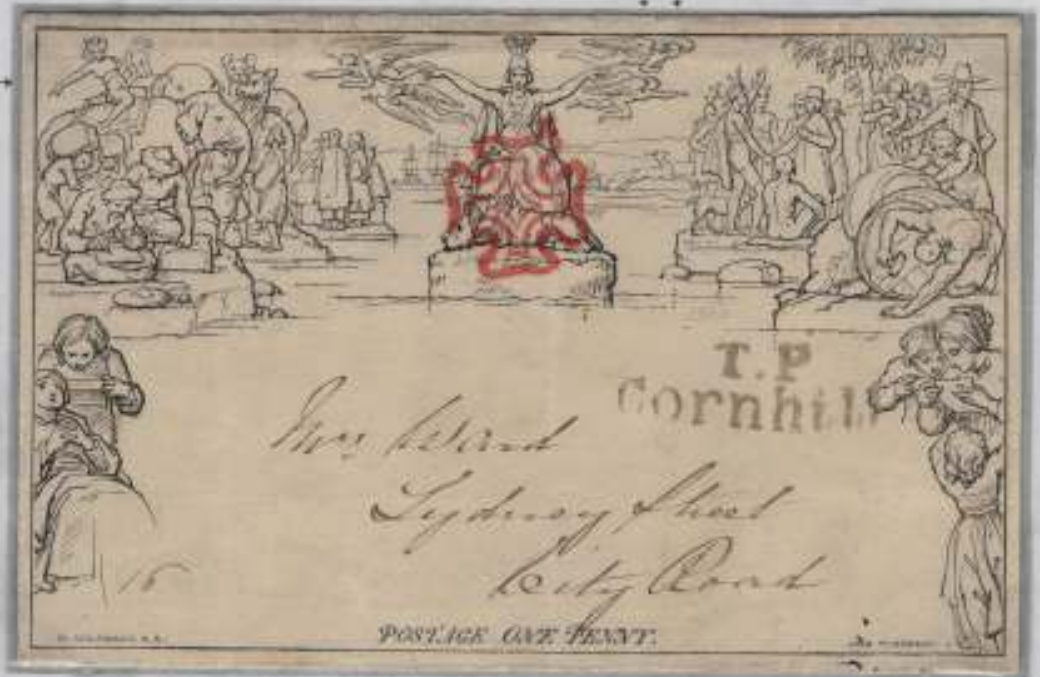 T.P
Cornhill
Mrs Ward
Sydney Street
City Road
16
POSTAGE ONE PENNY.